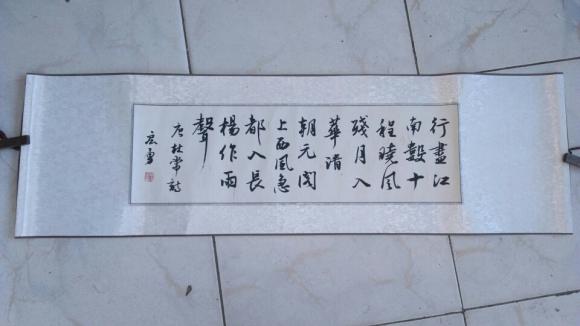 行盡江
南數十
程曉風
殘月入
華清
朝元閣
上西風急
都入長
楊作雨
聲
唐杜常詩
宏